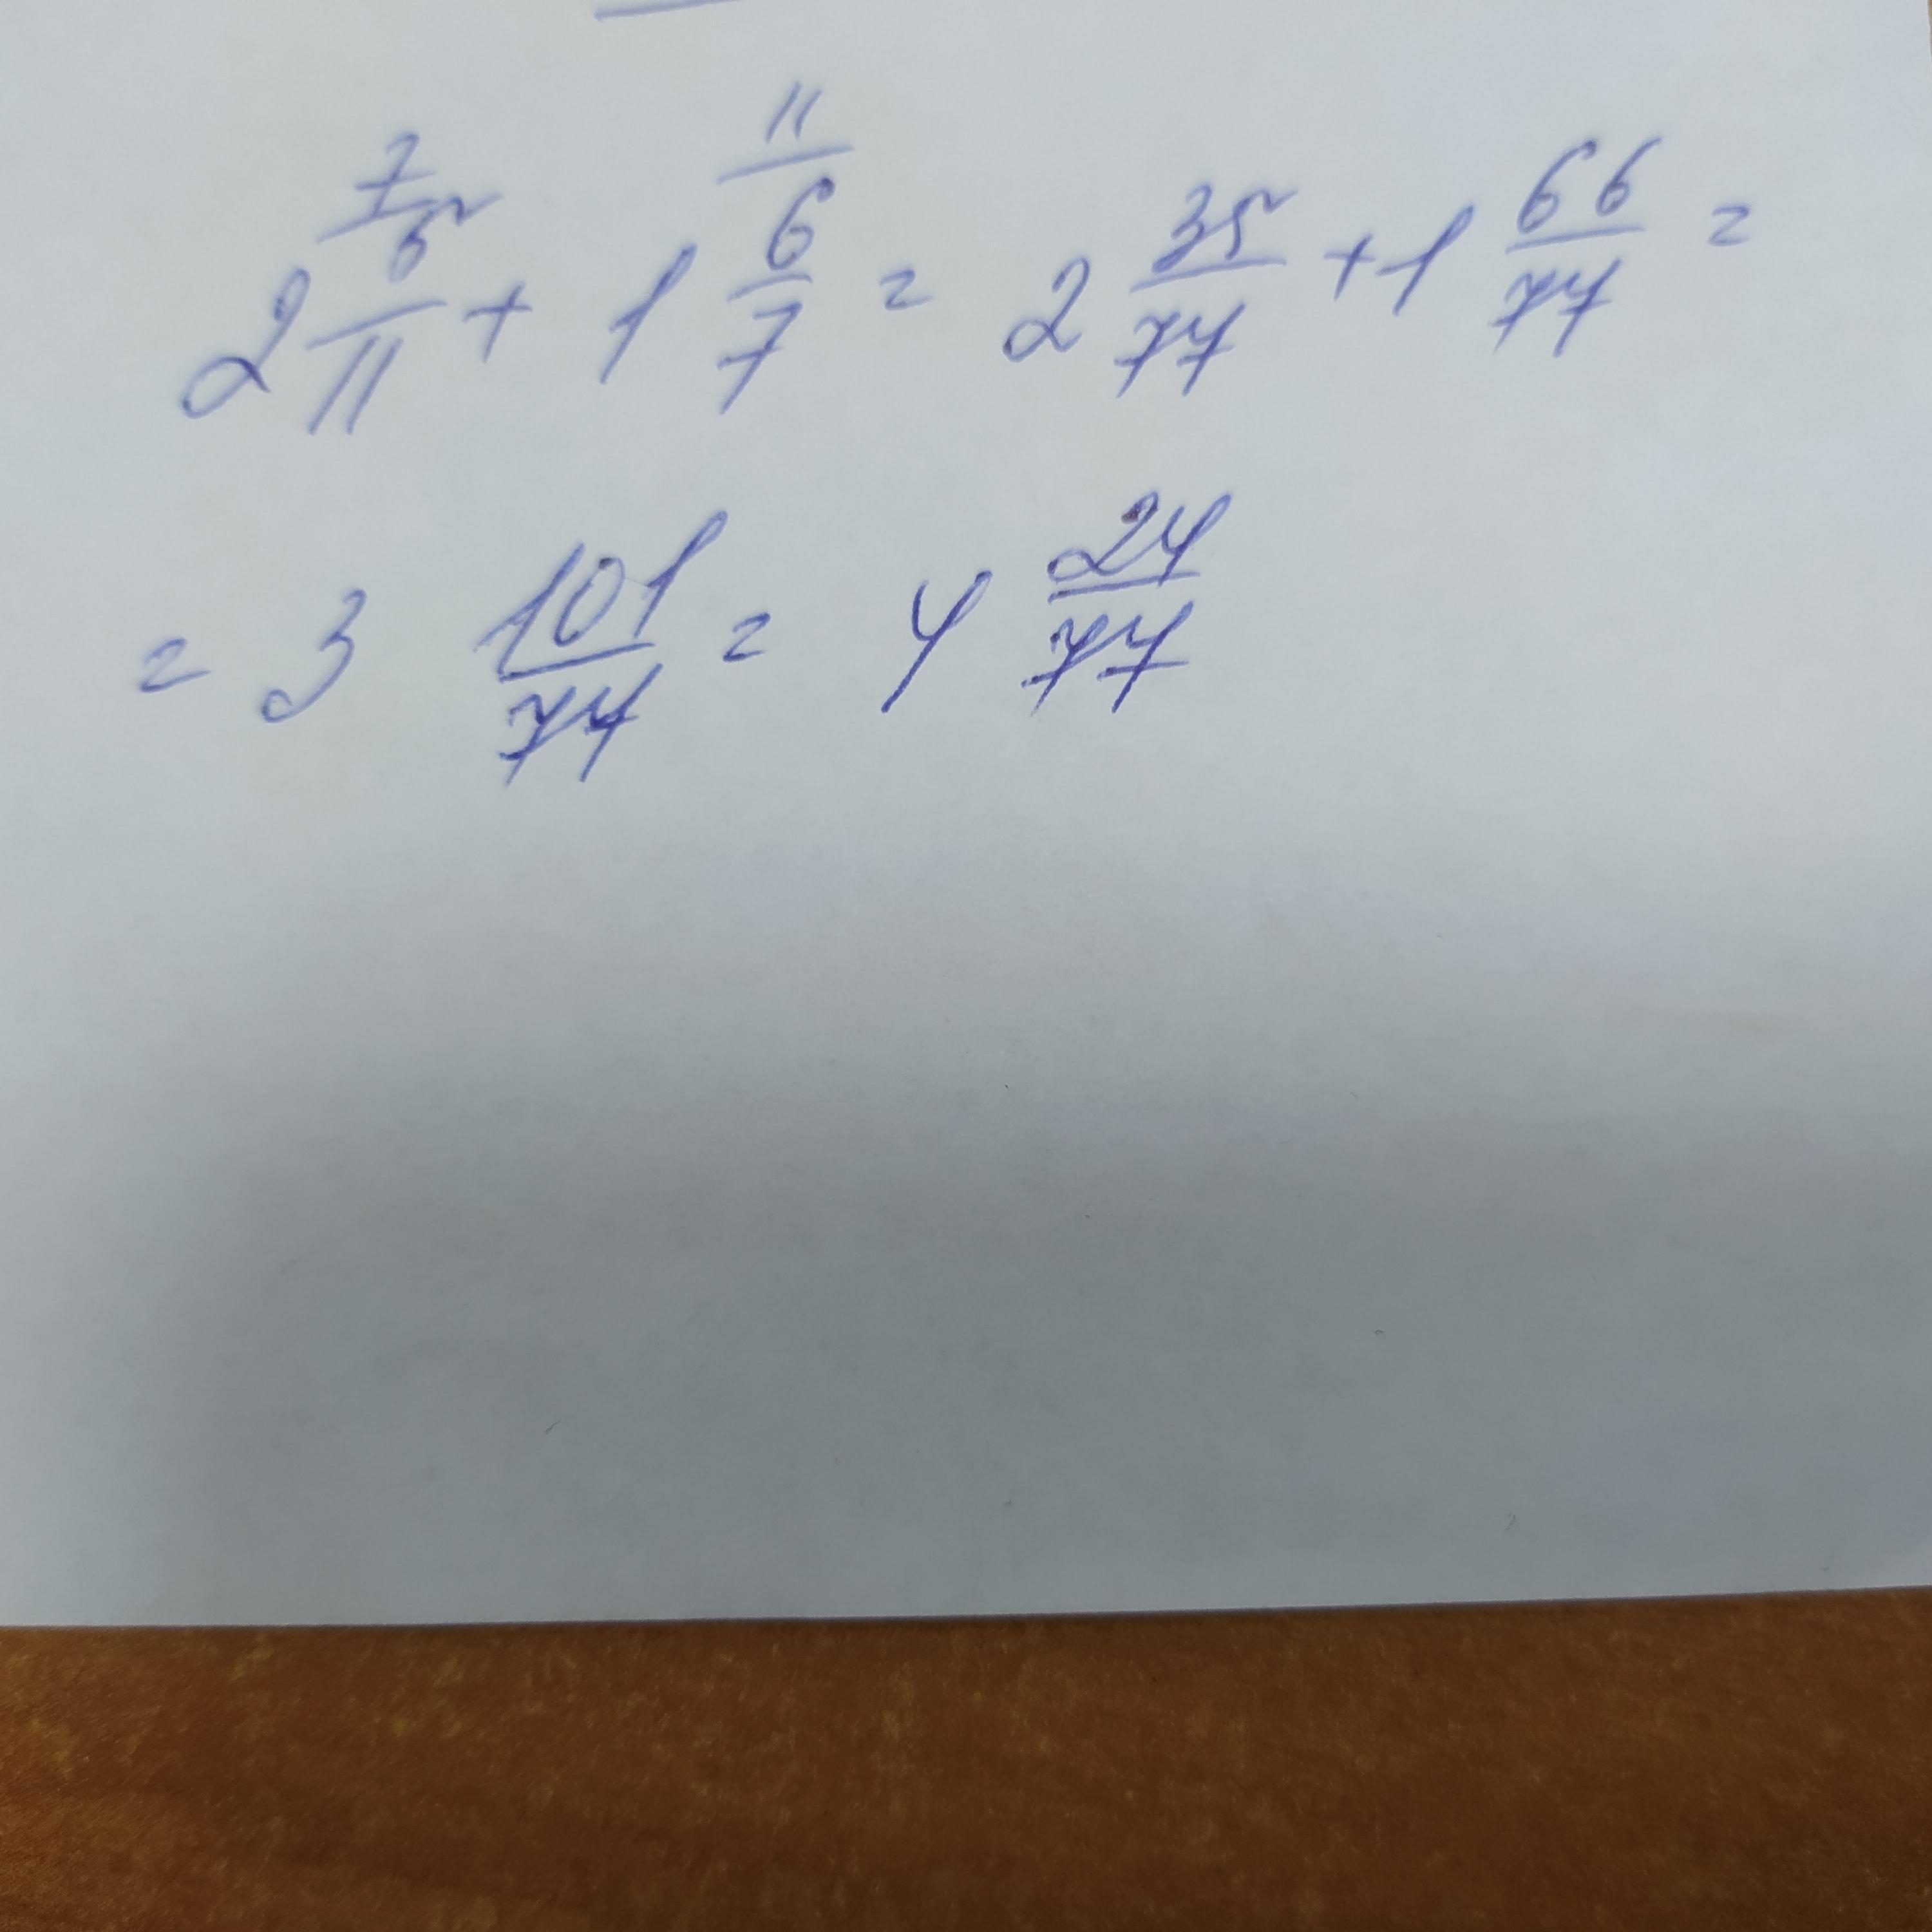 2 7/5/11 + 1 11/6/7 = 2 35/77 + 1 66/77 =
= 3 101/77 = 4 24/77